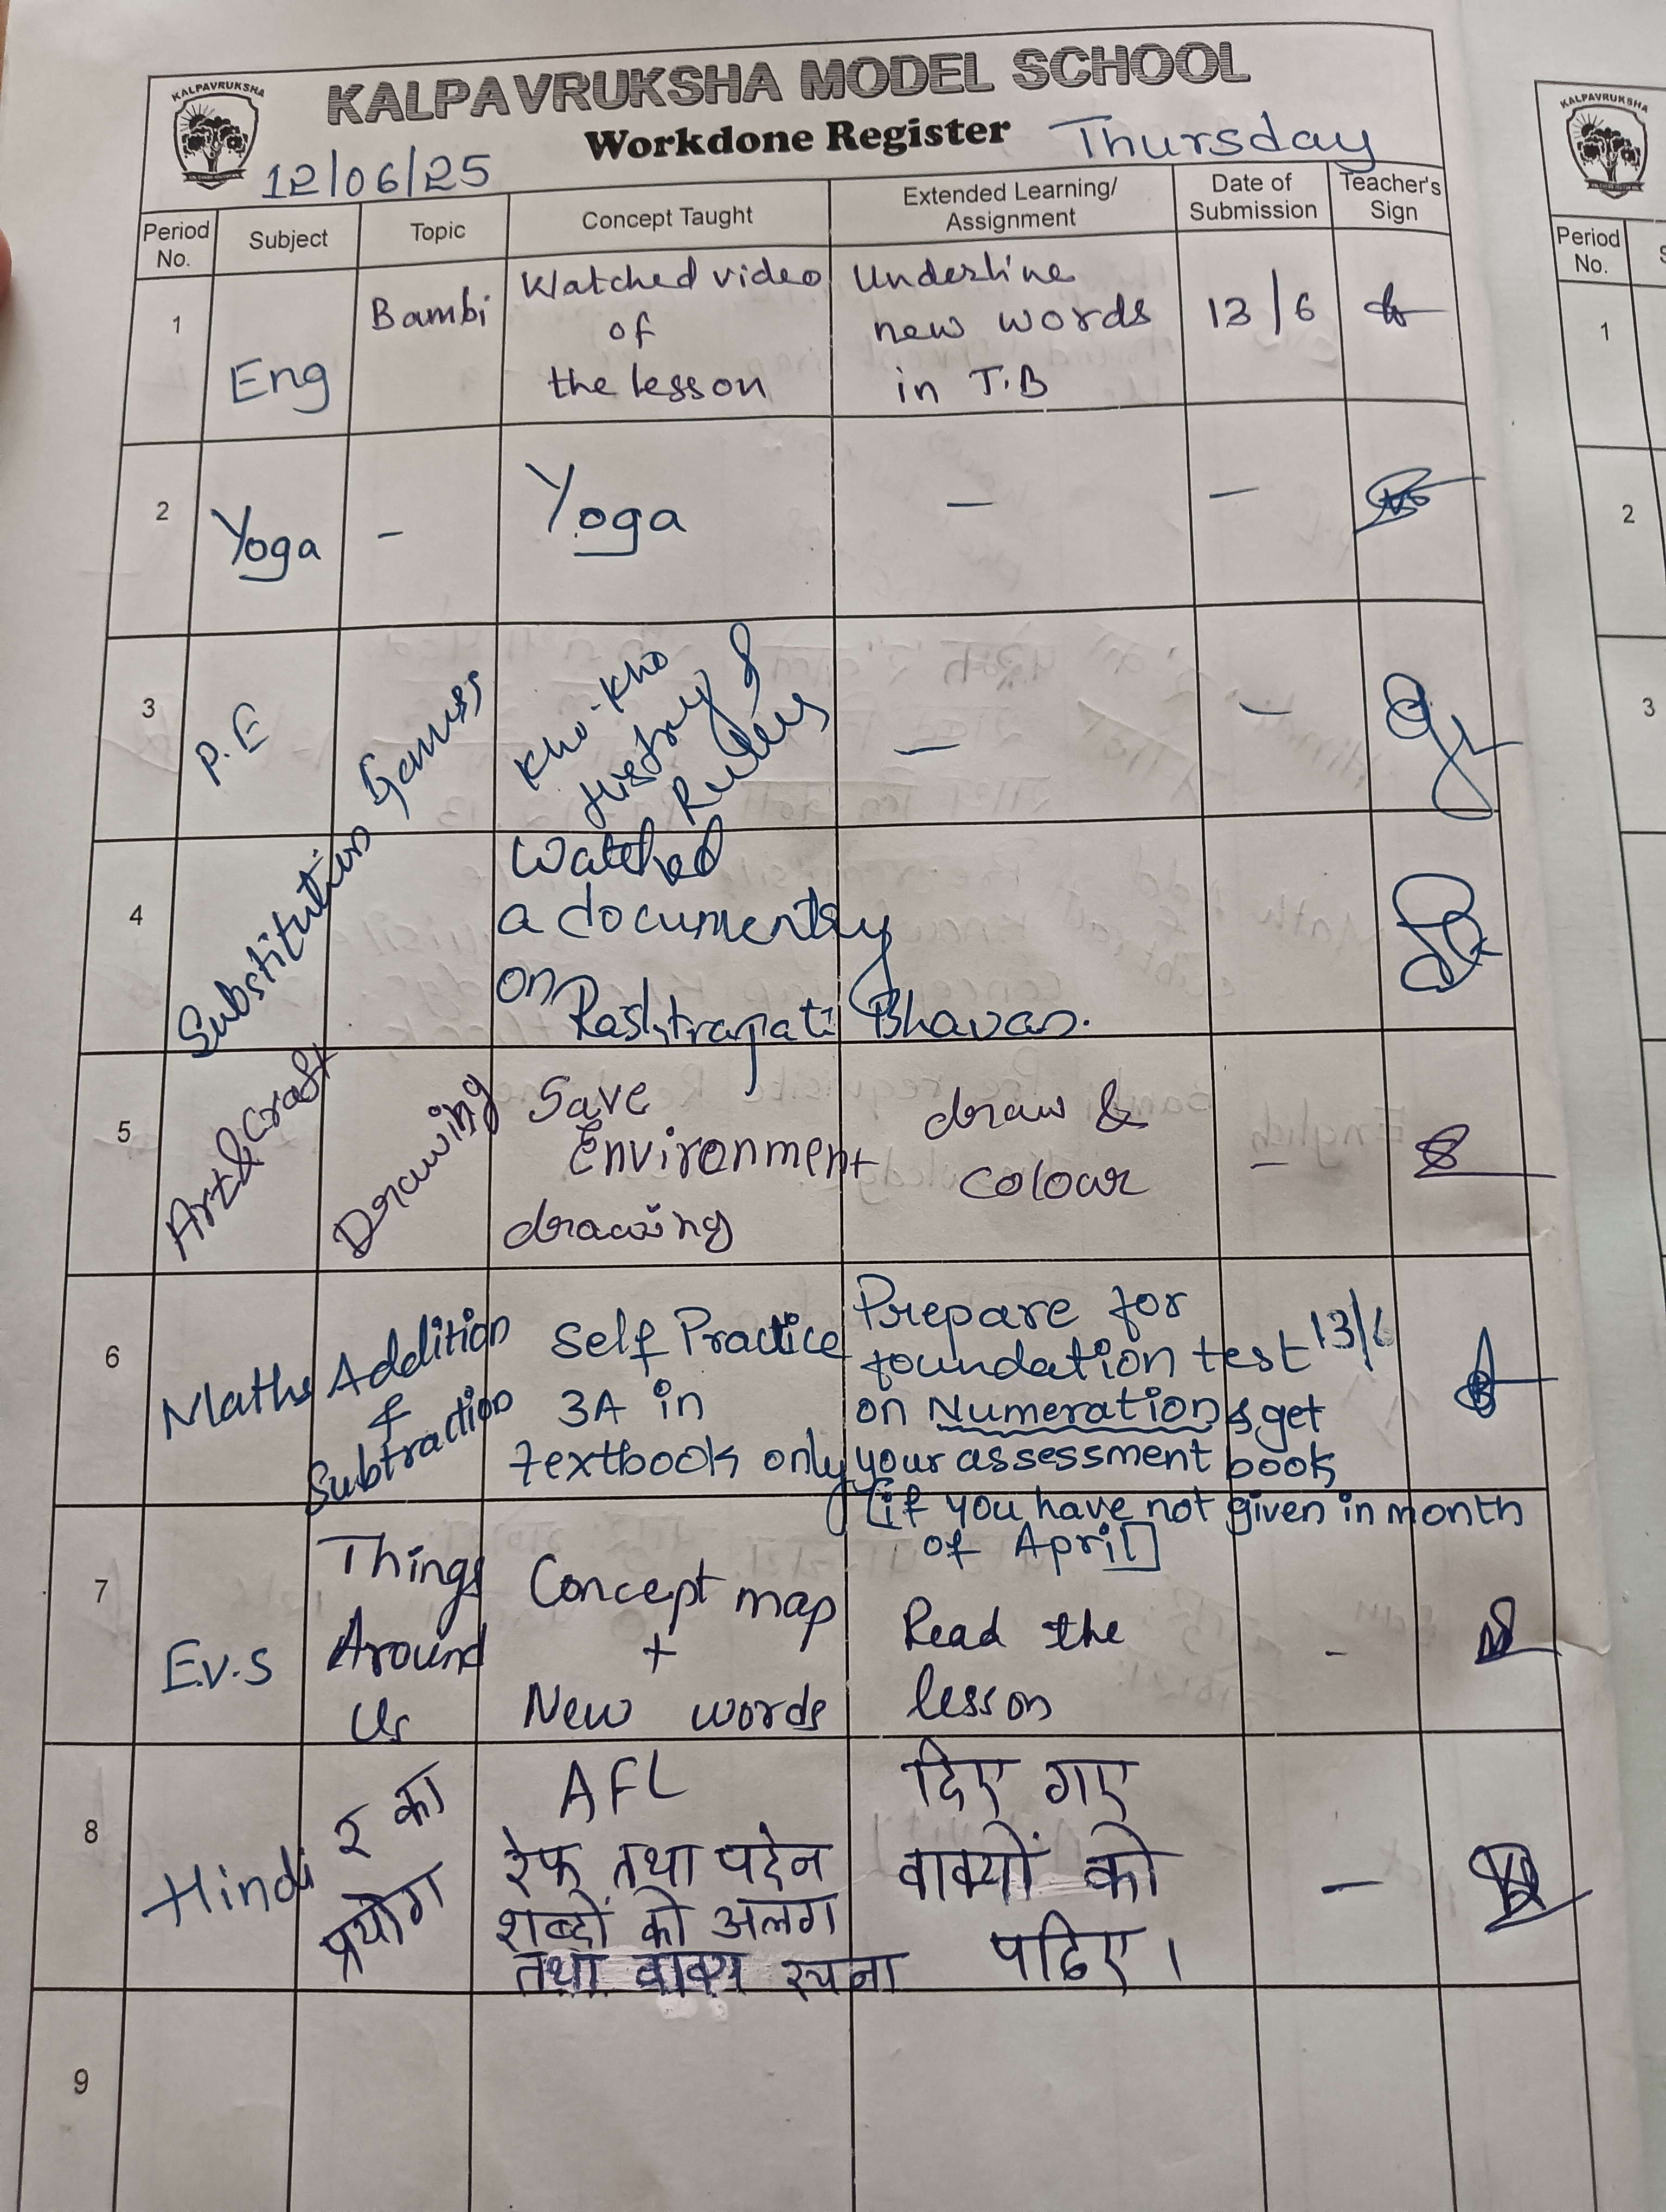 KALPAVRUKSHA
KALPAVRUKSHA MODEL SCHOOL
Workdone Register Thursday
12/06/25
Period No. Subject Topic Concept Taught Extended Learning/ Assignment Date of Submission Teacher's Sign
1 Eng Bambi
Watched video
of
the lesson
Underline
new words
in T.B
13/6
2 Yoga - Yoga - -
3 P.E Games
Kho-Kho
History &
- -
4 Substitution
Watched
a documentry
on
Rashtrapati Bhavan.
5 Art & Craft Drawing
Save
Environment
drawing
draw &
colour
-
6 Maths
Addition
&
Subtraction
Self Practice
3A in
textbook only
Prepare for
foundation test 13/6
on Numeration & get
your assessment book
[if you have not given in month
of April]
7 E.v.s
Things
Around
Us
Concept map
+
New words
Read the
lesson
-
8 Hindi
र का
प्रयोग
AFL
रेफ तथा पदेन
शब्दों को अलग
तथा वाक्य रचना
दिए गए
वाक्यों को
पढिए।
-
9
KALPAVRUKSHA
Period
No.
1
2
3